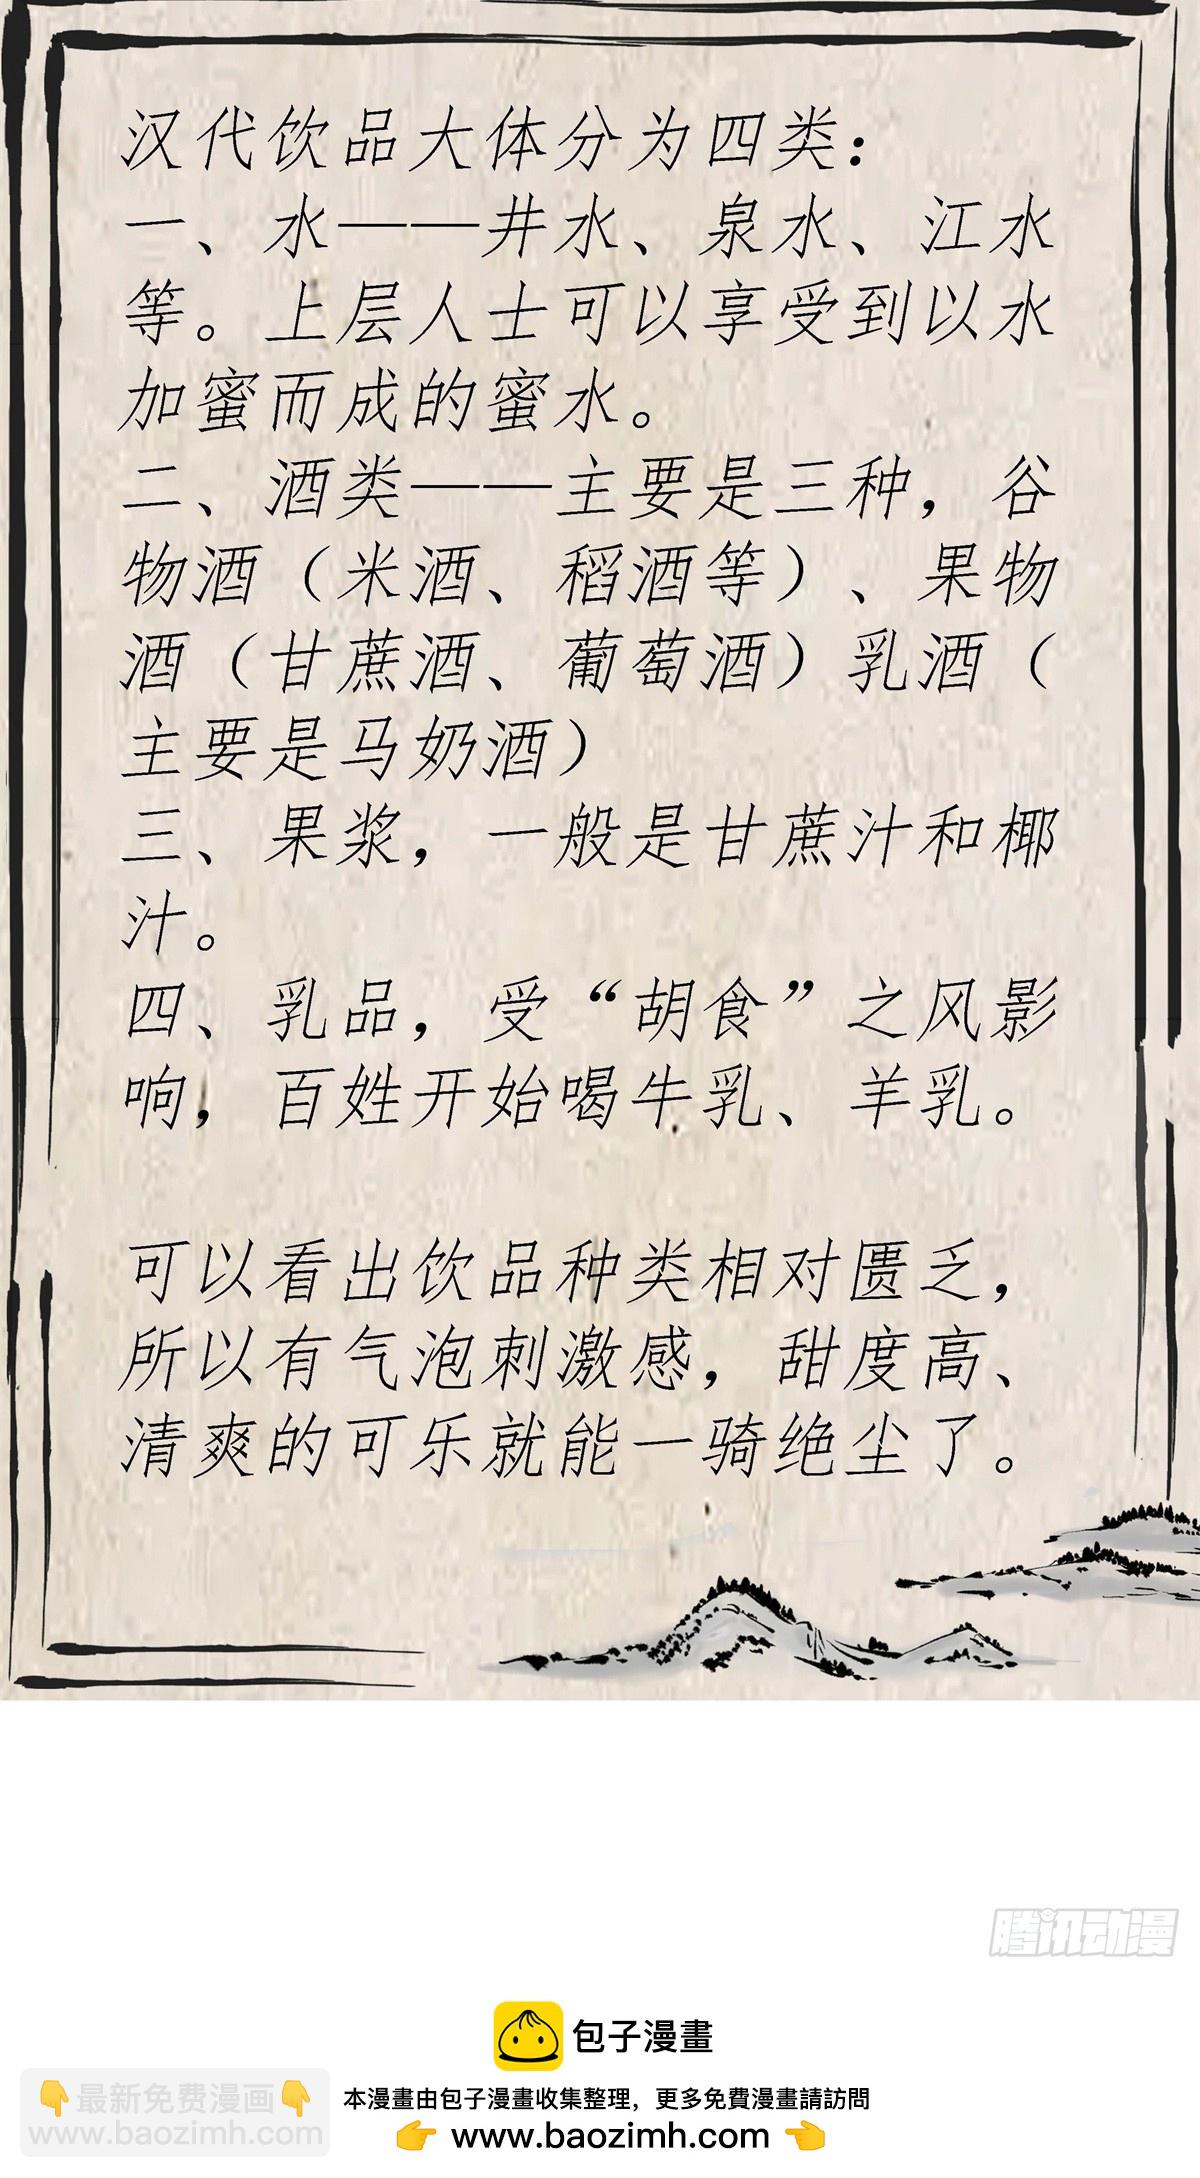 汉代饮品大体分为四类：
一、水——井水、泉水、江水
等。上层人士可以享受到以水
加蜜而成的蜜水。
二、酒类——主要是三种，谷
物酒（米酒、稻酒等）、果物
酒（甘蔗酒、葡萄酒）乳酒（
主要是马奶酒）
三、果浆，一般是甘蔗汁和椰
汁。
四、乳品，受“胡食”之风影
响，百姓开始喝牛乳、羊乳。
可以看出饮品种类相对匮乏，
所以有气泡刺激感，甜度高、
清爽的可乐就能一骑绝尘了。
腾讯动漫
包子漫畫
👇最新免费漫画👇
www.baozimh.com
本漫畫由包子漫畫收集整理，更多免費漫畫請訪問
👉 www.baozimh.com 👈